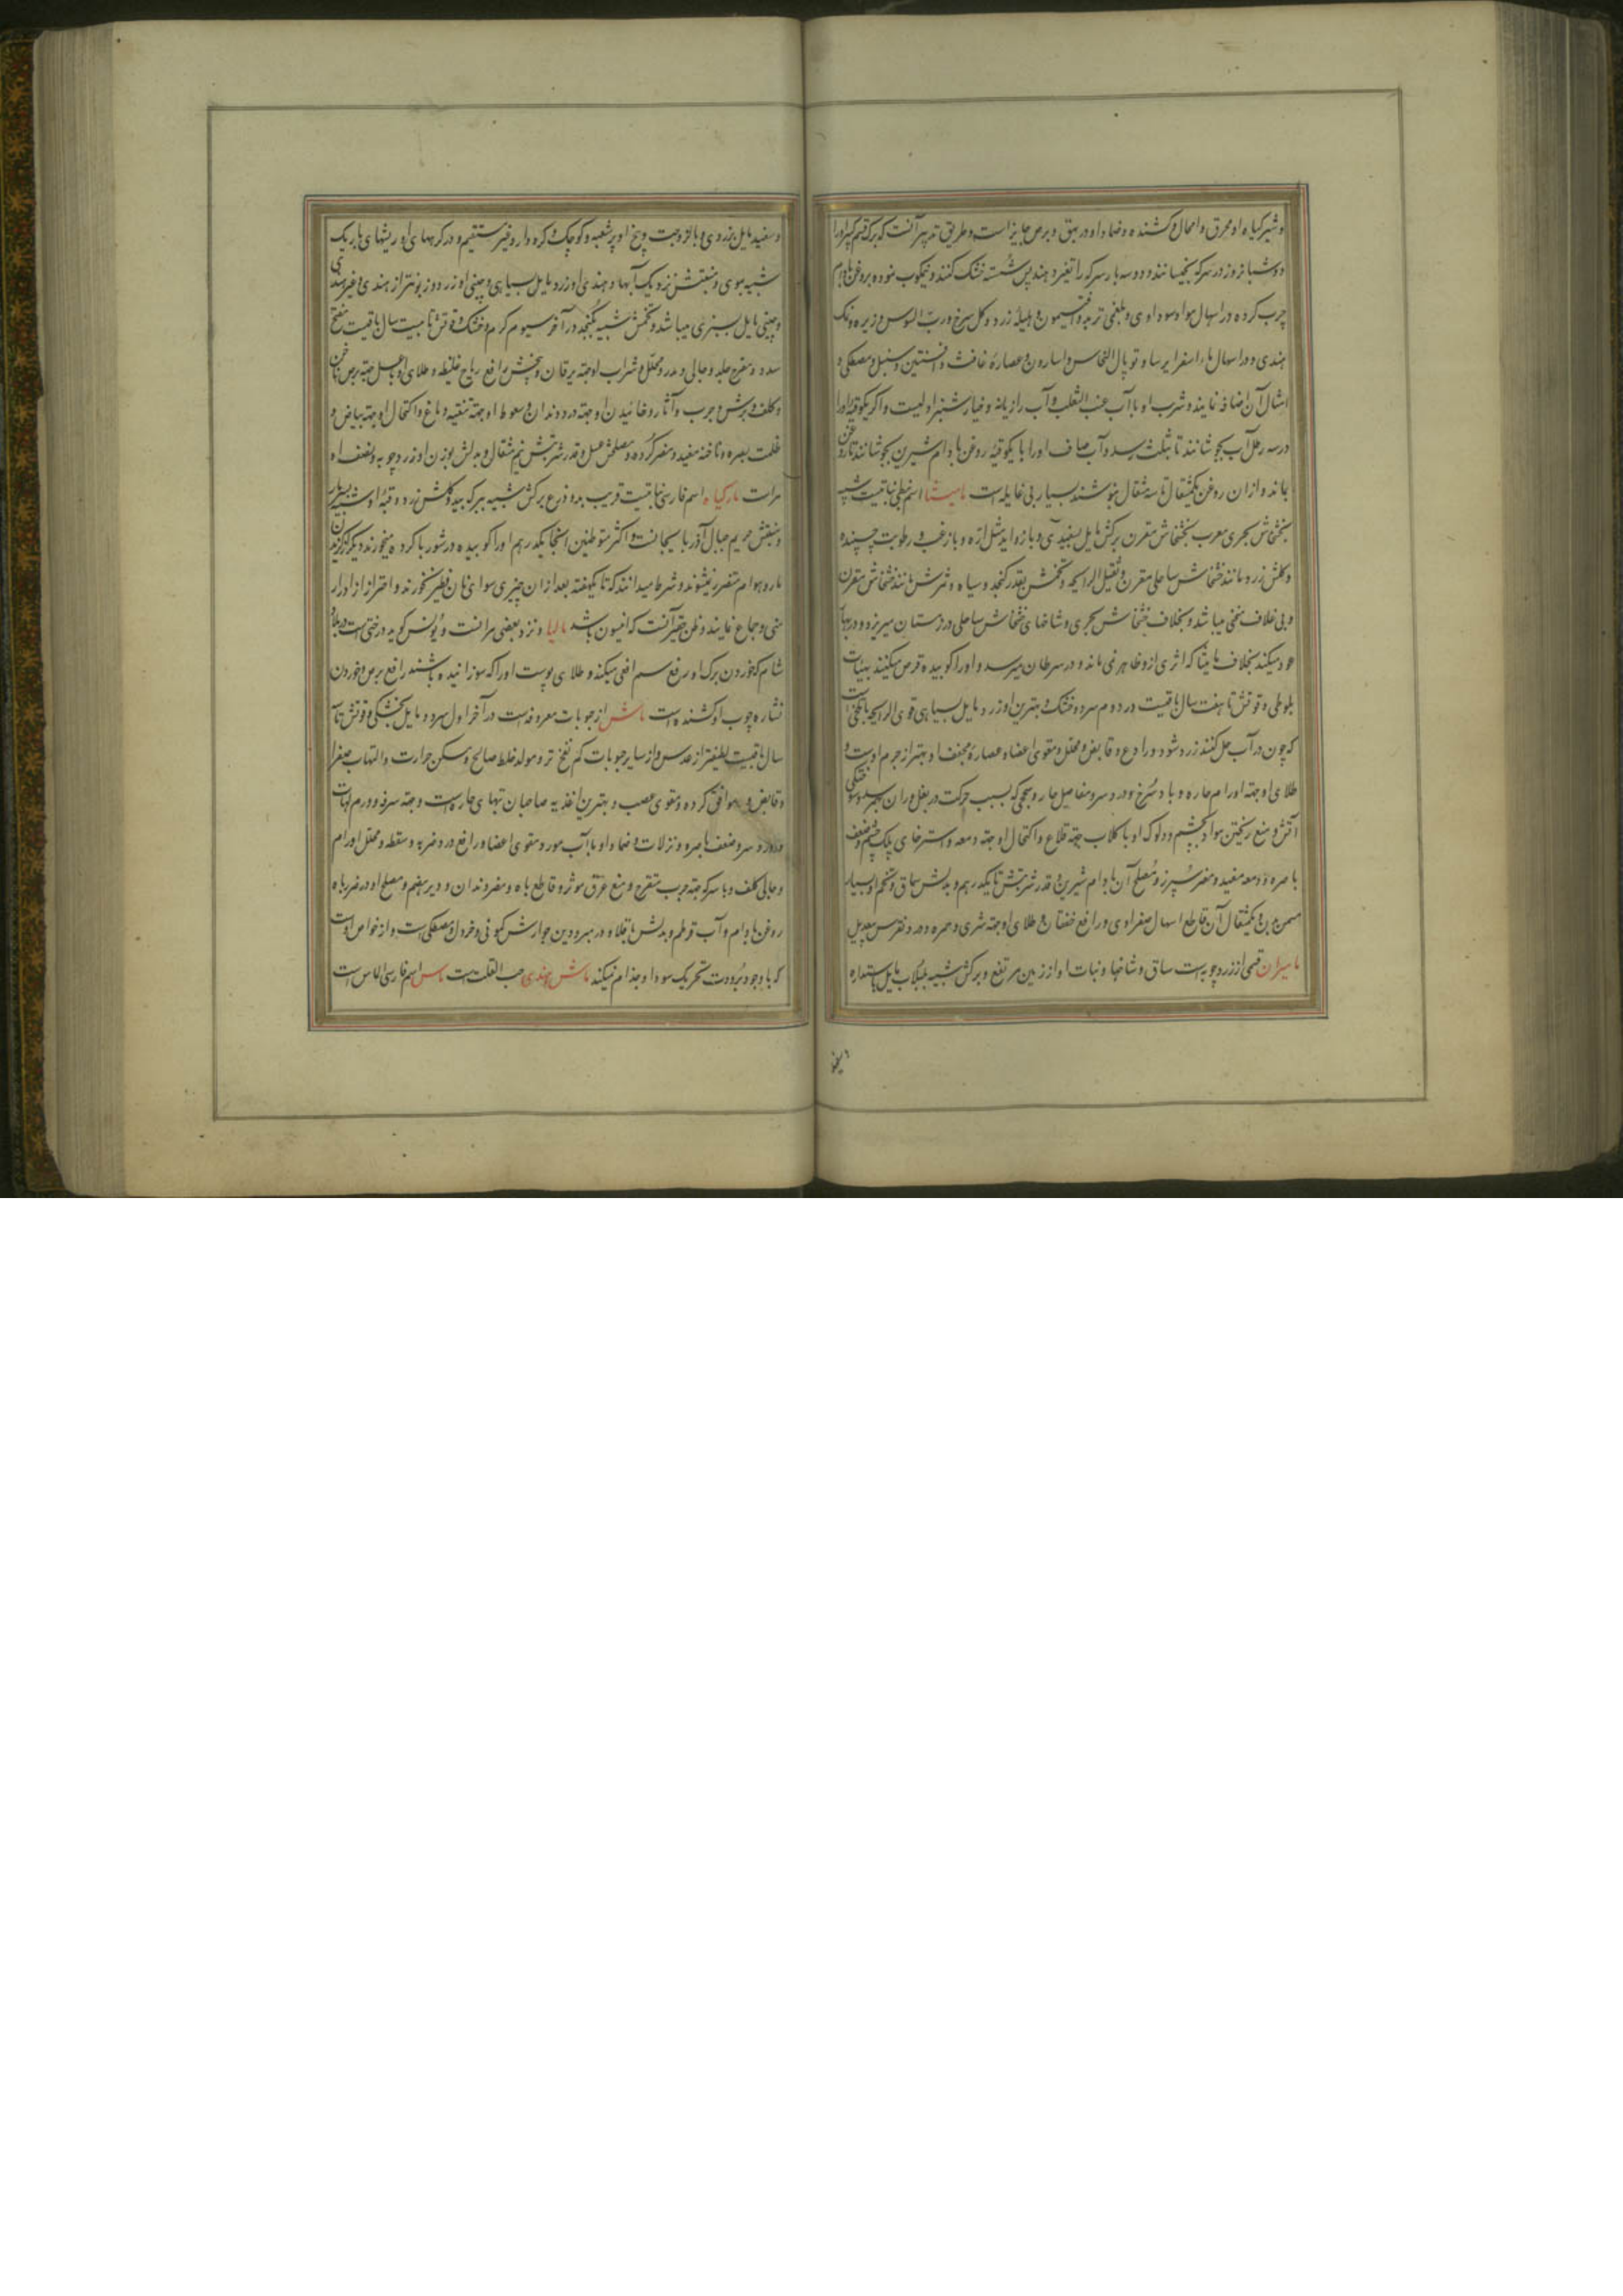 و شیر گیاه او محرق و اکحال او کشنده و ضماد او در بهق و برص جایز است و طریق تدبیر آنست که برک قسم کبیر او را
دو شبانروز در سرکه بخیسانند و دو سه بار سرکه را تغیر دهند پس شسته خشک کنند و نیمکوب نموده بروغن بادام
چرب کرده در اسهال مواد سوداوی و بلغمی تربد و افتیمون و هلیلهٔ زرد و کل سرخ و رب السوس و زیره و نمک
هندی و در اسهال ماء اصفر ایرسا و توبال النحاس و اسارون و عصارهٔ غافث و افسنتین و سنبل و مصطکی و
امثال آن اضافه نمایند و شرب او با آب عنب الثعلب و آب رازیانه و خیارشنبر اولیست و اگر یکوقیه او را
در سه رطل آب بجوشانند تا بثلث رسد و آب صاف او را با یکوقیهٔ روغن بادام شیرین بجوشانند تا روغن
بماند و از ان روغن یکمثقال تا سه مثقال بنوشند بسیار بی غایله است مامیثا اسم نبطی نباتیست شبیه
بخشخاش بحری معرب بخشخاش مقرن برکش مایل بسفیدی و با زواید مثل اره و با زغب و رطوبت چسپنده
و کلش زرد و مانند خشخاش ساحلی مقرن و ثقیل الرایحه و تخمش بقدر کنجد و سیاه و ثمرش مانند خشخاش مقرن
و بی غلاف تخمی میباشد و بخلاف خشخاش بحری و شاخهای خشخاش ساحلی در زمستان میریزد و در بهار
عود میکند بخلاف مامیثا که اثری ازو ظاهر نمی ماند و در سرطان میرسد و او را کوبیده قرص میکنند بهیات
بلوطی و قوتش تا هفت سال باقیست در دوم سرد و خشک و بهترین او زرد مایل بسیاهی قوی الرایحه با تلخی است
که چون در آب حل کنند زرد شود و رادع و قابض و محلل و مقوی اعضا و عصارهٔ مجفف او بهتر از جرم اوست و
طلای او جهة اورام حاره و باد سرخ و درد سر و مفاصل حار و سحجی که بسبب حرکت در بغل و ران بهمرسد و سوختکی
آتش و منع ریختن مواد بچشم و دلوک او با کلاب جهة قلاع و اکتحال او جهة دمعه و استرخای پلک چشم و ضعف
باصره و دمعه مفید و مضر سپرز و مصلح آن بادام شیرین و قدر شربتش تا یکدرهم و بدلش سماق و تخم او بسیار
مسمن بدن و یکمثقال آن قاطع اسهال صفراوی و رافع خفقان و طلای او جهة شری و حمره و درد نقرس بیعدیل
مامیران قسمی از زردچوبه است ساق و شاخها و نبات او از زمین مرتفع و برکش شبیه بلبلاب مایل باستداره
و سفید مایل بزردی و با لزوجت و بیخ او پر شعبه و کوچک و کره دار و غیر مستقیم و در کرههای او ریشهای باریک
شبیه بموی و منبتش نزدیک آبها و هندی او زرد مایل بسیاهی و چینی او زرد و زبونتر از هندی و غیر هندی
و چینی مایل بسبزی میباشد و تخمش شبیه بکنجد در آخر سیوم کرم و خشک و قوتش تا بیست سال باقیست مفتح
سدد و مفرح جلد و جالی و مدر و محلل و شراب او جهة یرقان و بیخش رافع ریاح غلیظه و طلای او با عسل جهة برص ناخن
و کلف و برش و جرب و آثار و خائیدن او جهة درد دندان و سعوط او جهة تنقیه دماغ و اکتحال او جهة بیاض و
غلظت بصره و ناخنه مفید و مضر کرده و مصلحش عسل و قدر شربتش نیم مثقال و بدلش بوزن او زردچوبه و نصف او
مراست مارکیاه اسم فارسی نباتیست قریب بدو ذرع برکش شبیه ببرک بید و کلش زرد و قبهٔ او شبیه بسر مار
و منبتش حریم جبال آذربایجانست و اکثر متوطنین انجا یکدرهم او را کوبیده در شوربا کرده میخورند دیگر از کزیدن
مار و هوام متضرر نمیشوند و شرط میدانند که تا یکهفته بعد از ان چیزی سوای نان فطیر نخورند و احتراز از ادرار
منی و جماع نمایند و ظن حقیر آنست که انیسون باشد مالیا و نزد بعضی مرانست و یونس کوید درختیست در بلاد
شام که خوردن برک او رفع سم افعی میکند و طلای پوست او را که سوزانیده باشند رافع برص و خوردن
نشاره چوب او کشنده است ماش از حبوبات معروفه است در آخر اول سرد و مایل بخشکی و قوتش تا سه
سال باقیست لطیفتر از عدس و از سایر حبوبات کم نفخ تر و مولد خلط صالح و مسکن حرارت و التهاب صفرا
و قابض و موافق کرده و مقوی عصب و بهترین اغذیه صاحبان تبهای حاره است و جهة سرفه و ورم لهات
و درد سر و ضعف باصره و نزلات و ضماد او با آب مورد مقوی اعضا و رافع درد ضربه و سقطه و محلل اورام
و جالی کلف و با سرکه جهة جرب متقرح و منع عرق موثر و قاطع باه و مضر دندان و دیر هضم و مصلح او در ضرر باه
روغن بادام و آب قرطم و بدلش باقلا و در مبرودین جوارش کمونی و خردل و مصطکی است و از خواص اوست
که با وجود برودت تحریک سودا و جذام نمیکند ماش هندی حب القلت است ماس اسم فارسی الماس است